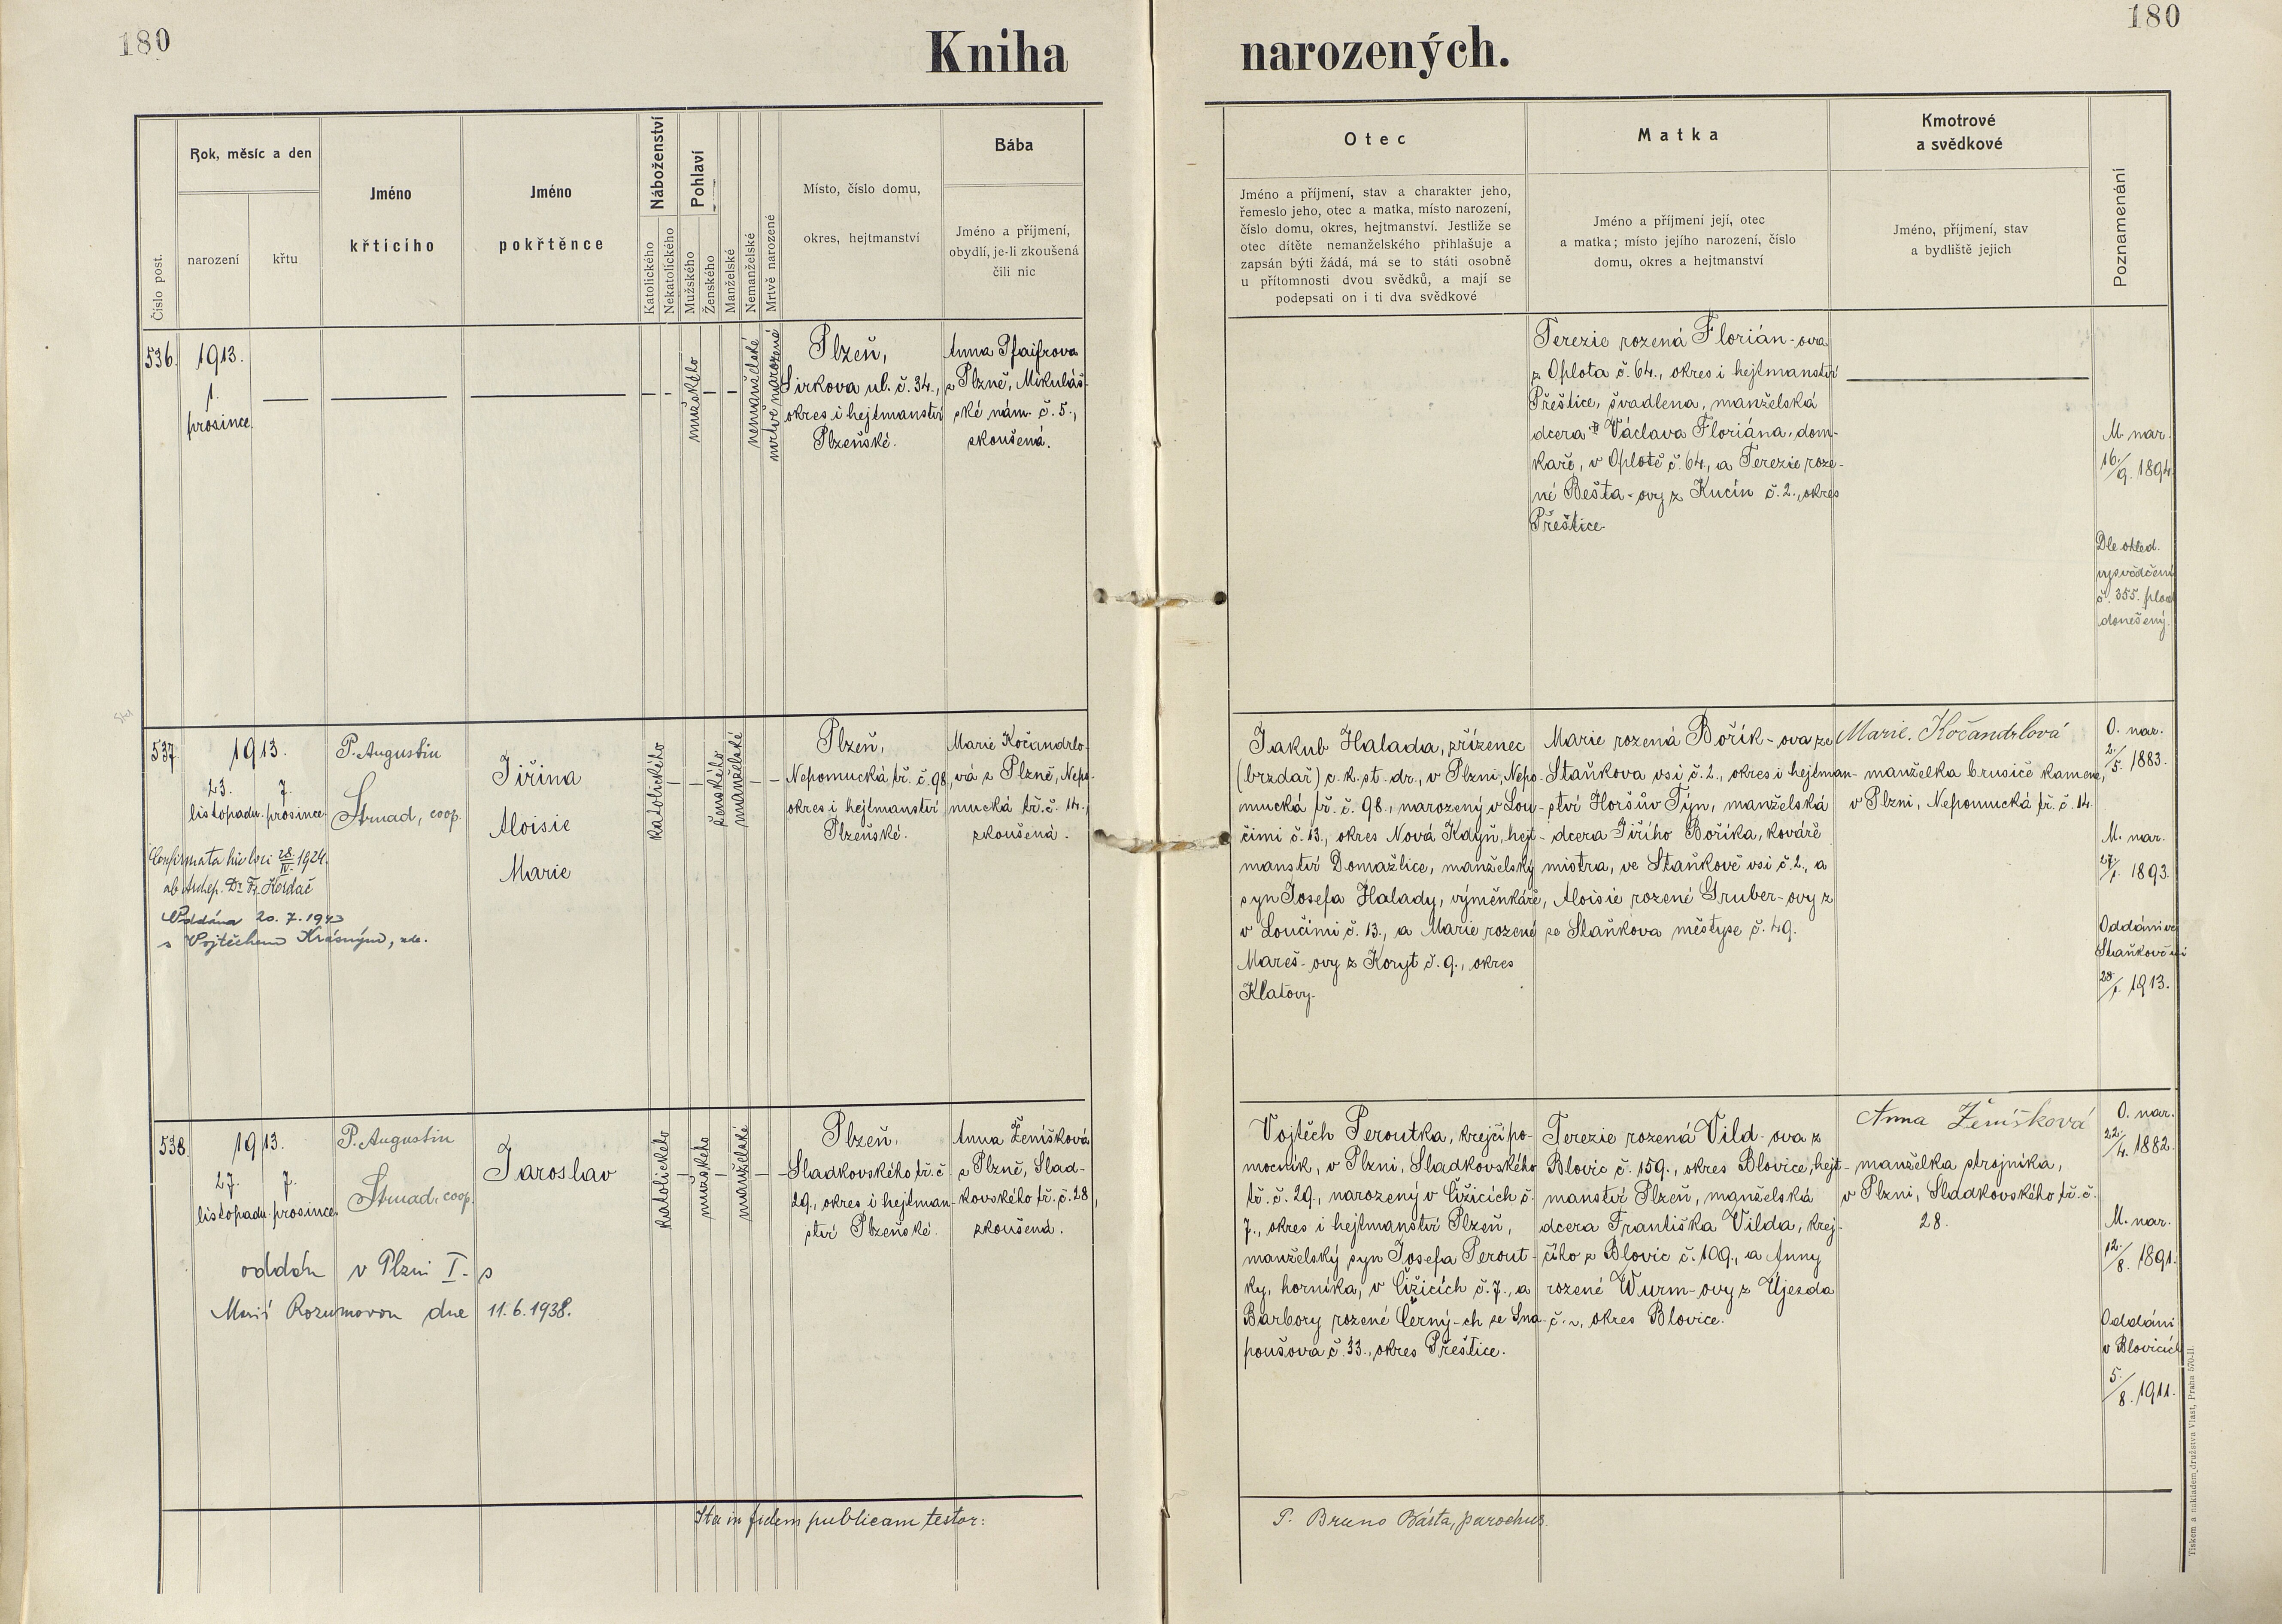 180
Kniha
narozených.
180
Číslo post.
Rok, měsíc a den
narození
křtu
Jméno
křticího
Jméno
pokřtěnce
Náboženství
Katolického
Nekatolického
Pohlaví
Mužského
Ženského
Manželské
Nemanželské
Mrtvě narozené
Místo, číslo domu,
okres, hejtmanství
Bába
Jméno a příjmení,
obydlí, je-li zkoušená
čili nic
Otec
Jméno a příjmení, stav a charakter jeho,
řemeslo jeho, otec a matka, místo narození,
číslo domu, okres, hejtmanství. Jestliže se
otec dítěte nemanželského přihlašuje a
zapsán býti žádá, má se to státi osobně
u přítomnosti dvou svědků, a mají se
podepsati on i ti dva svědkové
Matka
Jméno a příjmení její, otec
a matka; místo jejího narození, číslo
domu, okres a hejtmanství
Kmotrové
a svědkové
Jméno, příjmení, stav
a bydliště jejich
Poznamenání
536.
1913.
1.
prosince
mužského
nemanželské
mrtvě narozené
Plzeň,
Sirkova ul. č. 34.,
okres i hejtmanství
Plzeňské.
Anna Pfaifrova
z Plzně, Mikuláš-
ské nám. č. 5.,
zkoušená.
Terezie rozená Florián-ova
z Oplota č. 64., okres i hejtmanství
Přeštice, švadlena, manželská
dcera Václava Floriána, dom-
káře, v Oplotě č. 64., a Terezie roze-
né Bešta-ovy z Kucín č. 2., okres
Přeštice.
M. nar.
16./9. 1894.
Dle ohled.
vysvědčení
č. 355. plod
donešený.
537.
1913.
23.
listopadu
7.
prosince
P. Augustin
Strnad, coop.
Jiřina
Aloisie
Marie
katolického
ženského
manželské
Plzeň,
Nepomucká tř. č. 98,
okres i hejtmanství
Plzeňské.
Marie Kočandrlo-
vá z Plzně, Nepo-
mucká tř. č. 14.,
zkoušená.
Confirmata hic loci 28/IV. 1924.
ab Archep.
Oddána 20. 7. 1943
s Vojtěchem Krásným, zde.
Jakub Halada, zřízenec
(brzdař) c. k. st. dr., v Plzni, Nepo-
mucká tř. č. 98., narozený v Lou-
čimi č. 13., okres Nová Kdyň, hejt-
manství Domažlice, manželský
syn Josefa Halady, výměnkáře,
v Loučimi č. 13., a Marie rozené
Mareš-ovy z Koryt č. 9., okres
Klatovy.
Marie rozená Bořík-ova ze
Staňkova vsi č. 2., okres i hejtman-
ství Horšův Týn, manželská
dcera Jiřího Boříka, kováře
mistra, ve Staňkově vsi č. 2., a
Aloisie rozené Gruber-ovy z
ze Staňkova městyse č. 49.
Marie Kočandrlová
manželka brusiče kamene,
v Plzni, Nepomucká tř. č. 14.
O. nar.
2./5. 1883.
M. nar.
27./1. 1893.
Oddáni ve
Staňkově vsi
28./1. 1913.
538.
1913.
27.
listopadu
7.
prosince
P. Augustin
Strnad, coop.
Jaroslav
katolického
mužského
manželské
Plzeň,
Sladkovského tř. č.
29., okres i hejtman-
ství Plzeňské.
Anna Ženíšková
z Plzně, Slad-
kovského tř. č. 28,
zkoušená.
oddán v Plzni I. s
Marií Rozumovou dne 11. 6. 1938.
Vojtěch Peroutka, krejčí po-
mocník, v Plzni, Sladkovského
tř. č. 29., narozený v Čižicích č.
7., okres i hejtmanství Plzeň,
manželský syn Josefa Perout-
ky, horníka, v Čižicích č. 7., a
Barbory rozené Černý-ch ze Sna-
poušova č. 33., okres Přeštice.
Terezie rozená Vild-ova z
Blovic č. 159., okres Blovice, hejt-
manství Plzeň, manželská
dcera Františka Vilda, krej-
čího z Blovic č. 109., a Anny
rozené Wurm-ovy z Újezda
č. ~, okres Blovice.
Anna Ženíšková
manželka strojníka,
v Plzni, Sladkovského tř. č.
28.
O. nar.
22./4. 1882.
M. nar.
12./8. 1891.
Oddáni
v Blovicích
5./8. 1911.
Ita in fidem publicam testor:
P. Bruno Básta, parochus.
Tiskem a nákladem družstva Vlast, Praha 570-II.